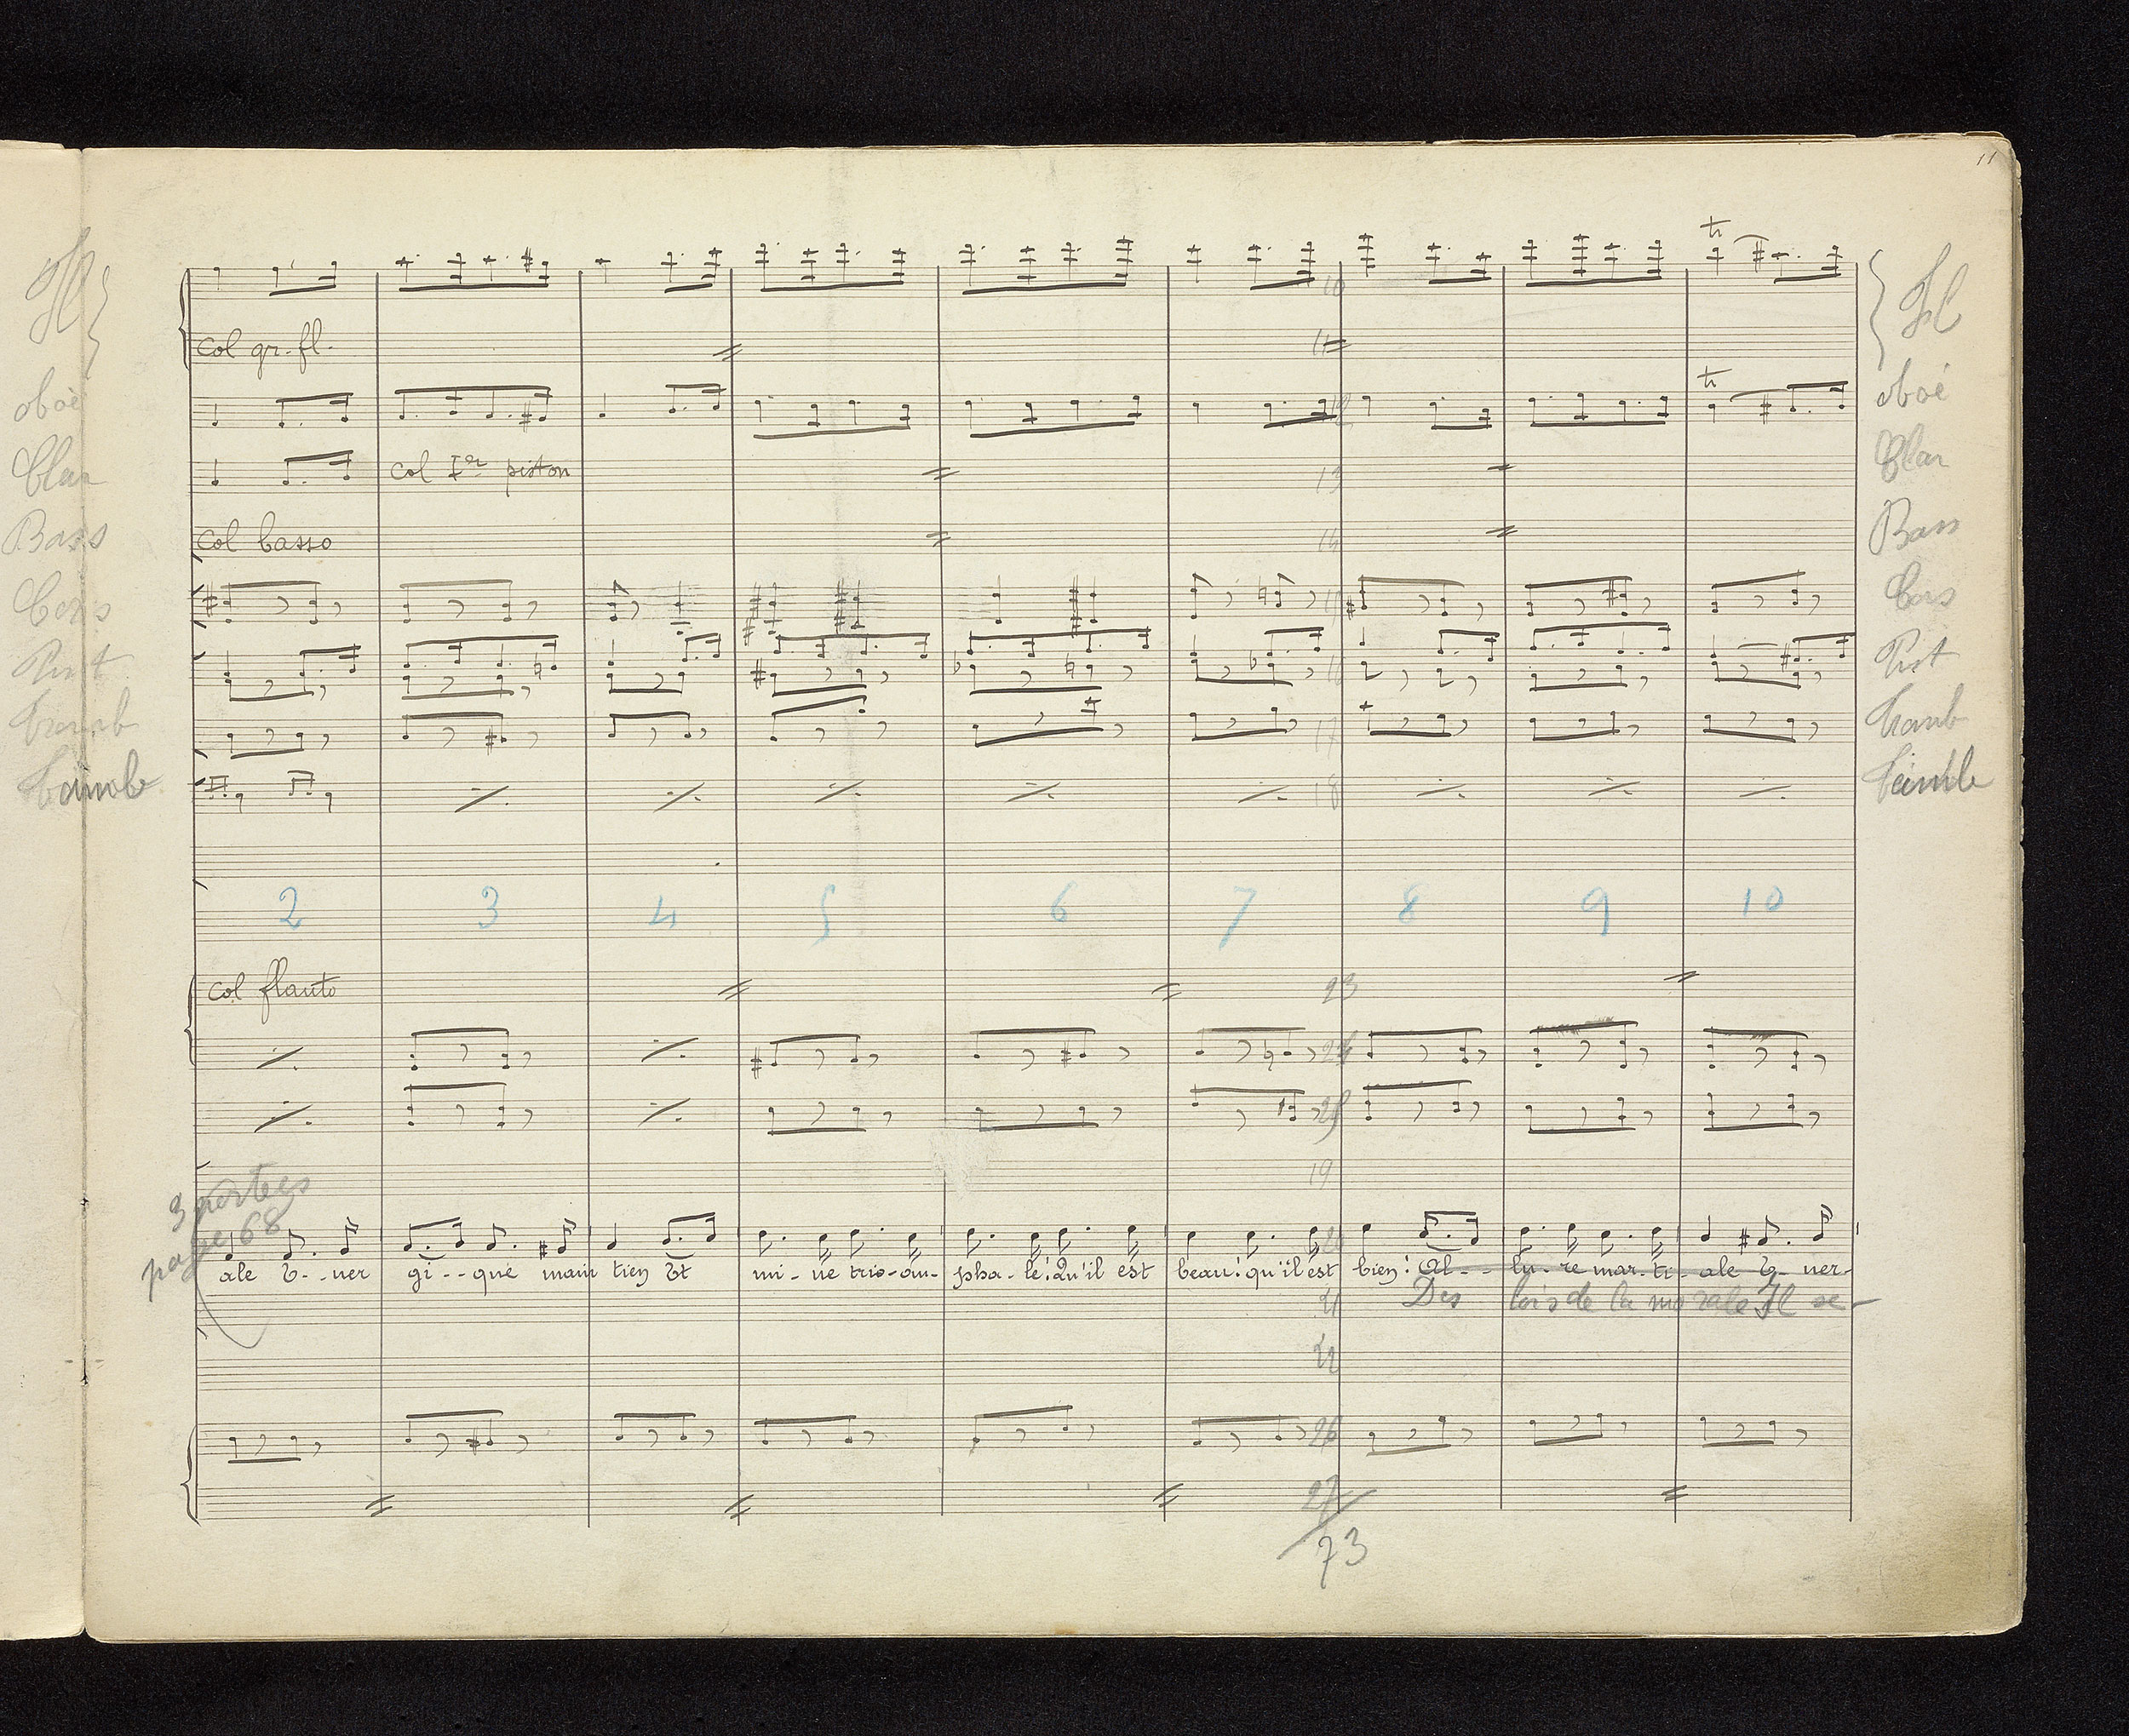 11
tr
Fl Fl
10
col gr. fl.
11
tr
oboè oboé
12
Clar col Ier piston Clar
13
Bass col basso Bass
14
Cors Cors
15
Pist Pist
16
Tromb Tromb
17
Timb Timb
18
2 3 4 5 6 7 8 9 10
col flauto
23
24
25
19
3 portées
page 68
20
ale E--ner gi--que main tien Et mi-ne trio-om-pha-le! Qu'il est beau! qu'il est bien! Al-- lu-re mar-ti-ale E-ner-
Des lois de la morale Il se-
21
22
26
27
73